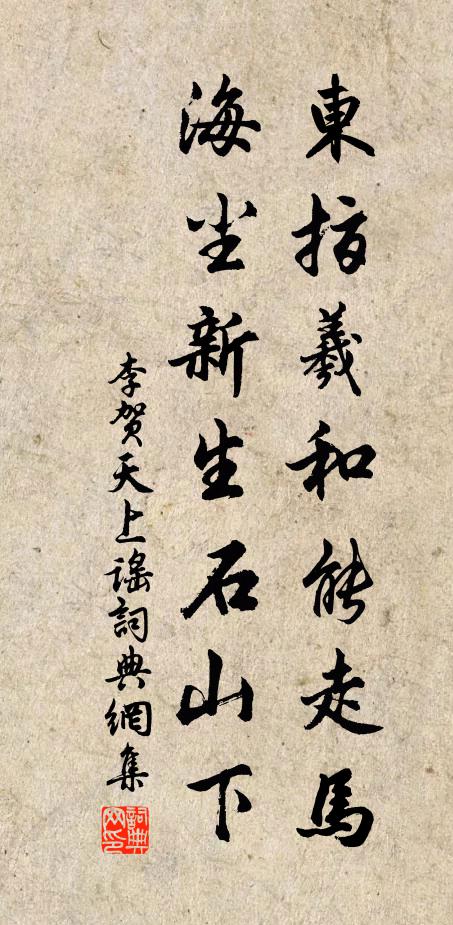 東指羲和能走馬
海尘新生石山下
李贺天上謠詞典網集
詞典网印